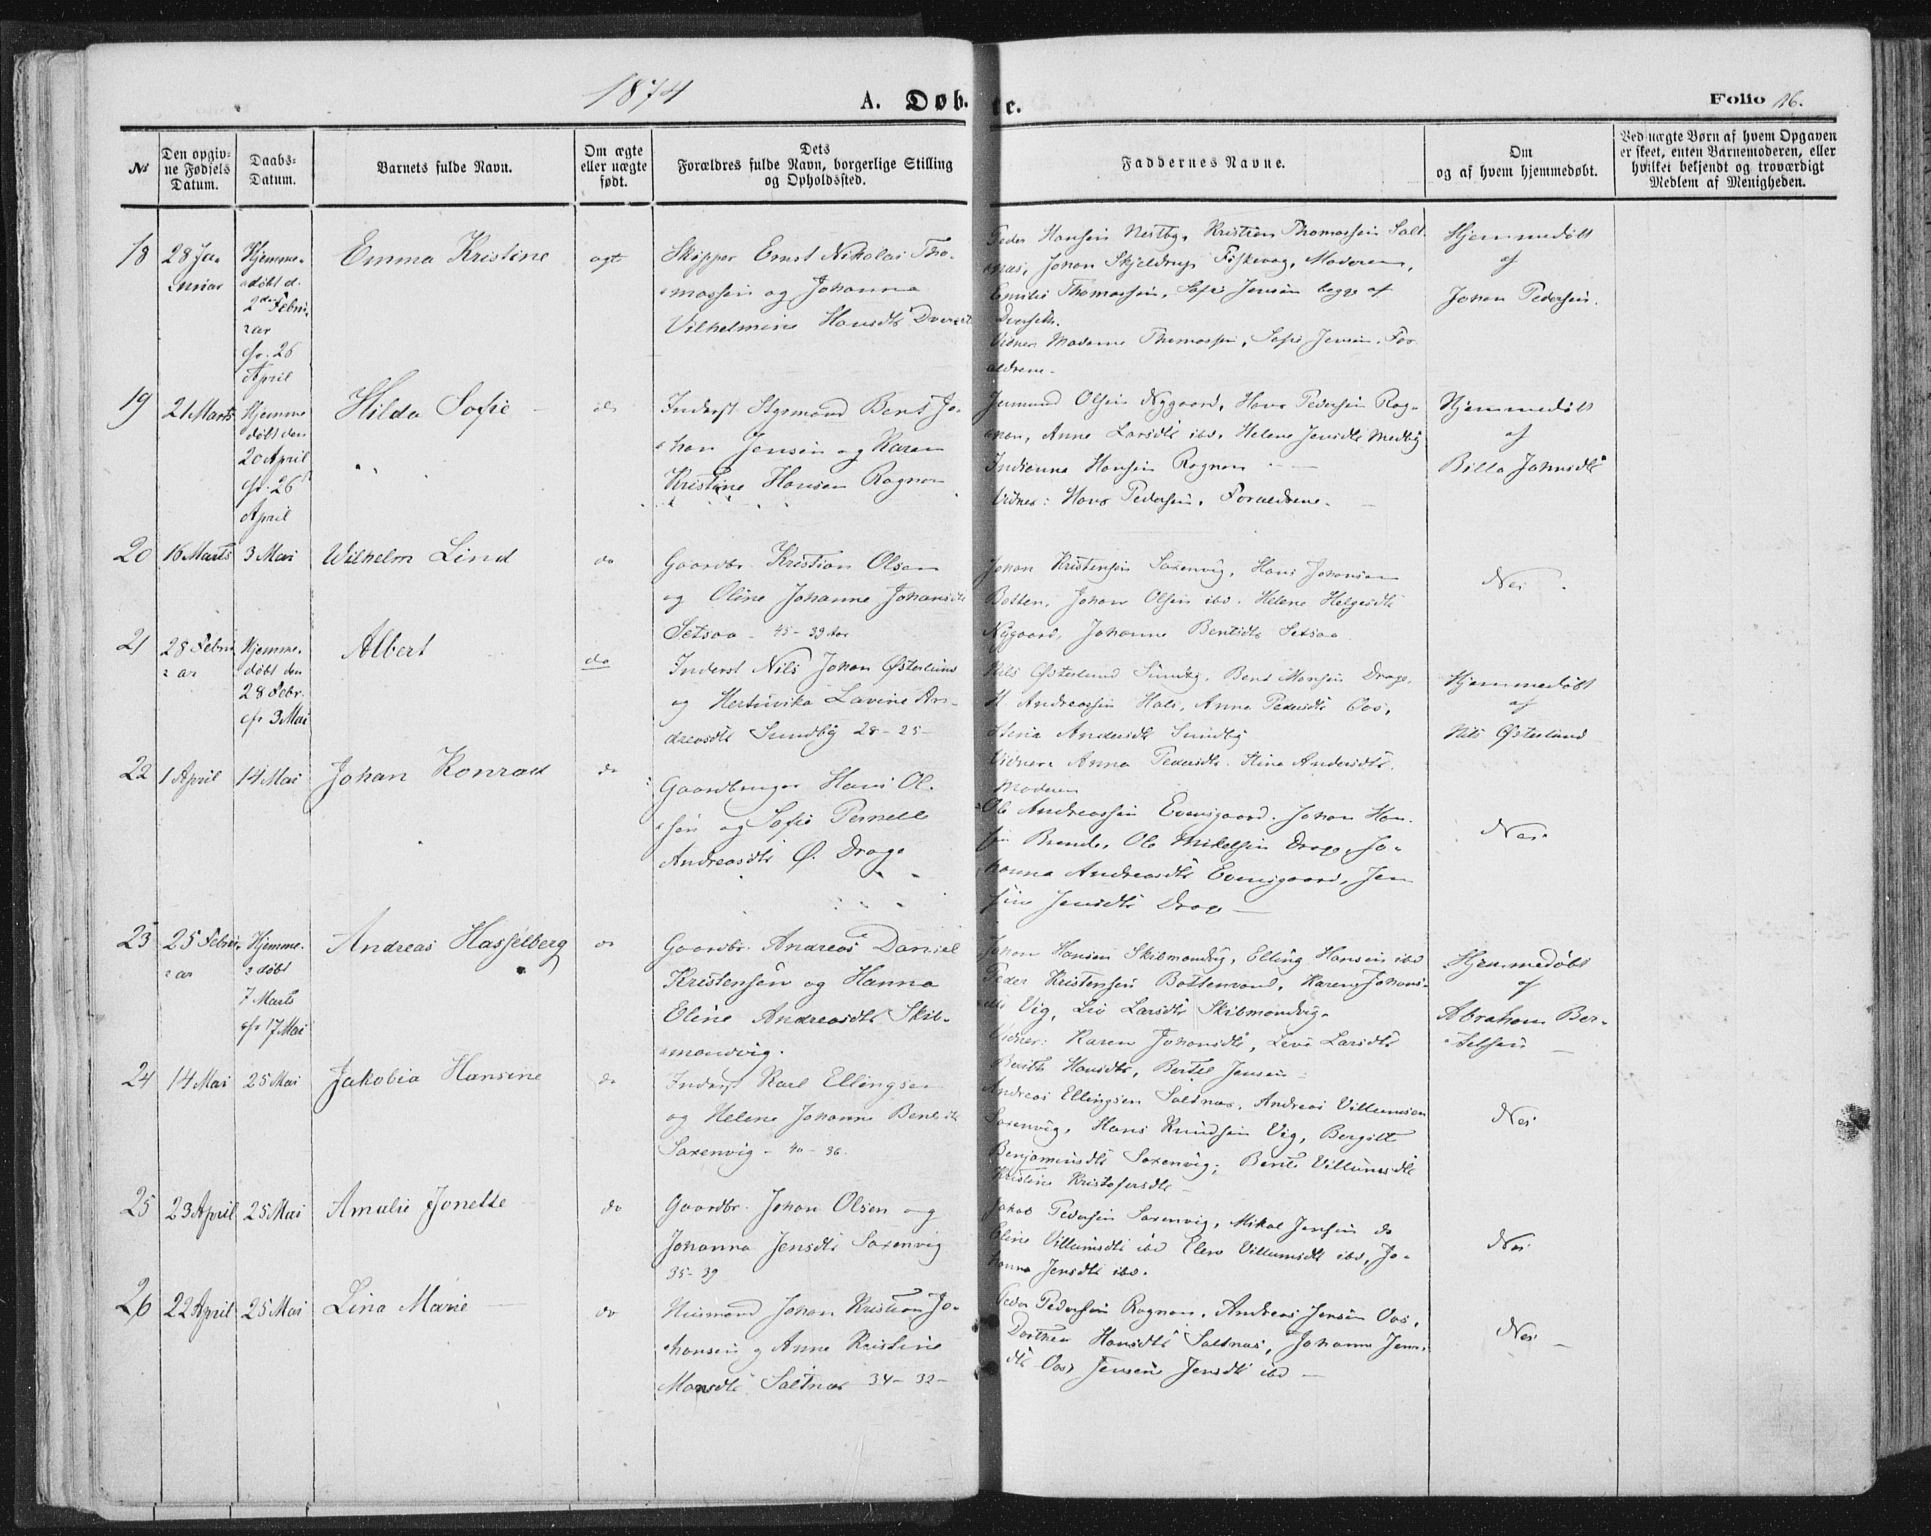 1874
A. Døb
te.
Folio 16.
№
Den opgiv-
ne Fødsels
Datum.
Daabs-
Datum.
Barnets fulde Navn.
Om ægte
eller uægte
født.
Dets
Forældres fulde Navn, borgerlige Stilling
og Opholdssted.
Faddernes Navne.
Om
og af hvem hjemmedøbt.
Ved uægte Børn af hvem Opgaven
er skeet, enten Barnemoderen, eller
hvilket bekjendt og troværdigt
Medlem af Menigheden.
18
28 Ja-
nuar
Hjemme-
døbt d.
2den Febru-
ar
cfr. 26
April
Emma Kristine
ægte
Skipper Ernst Nikolai Tho-
massen og Johanna
Vilhelmine Hansdt Dverset
Peder Hansen Nestby, Kristian Thomassen Salt-
næs, Johan Skjeldrup Fiskevag, Moderen,
Emilie Thomassen, Sofie Jensen begge af
Dverseth.
Vidner Madame Thomassen, Sofie Jensen. For-
ældrene.
Hjemmedøbt
af
Johan Pedersen.
19
21 Marts
Hjemme
døbt den
20 April
cfr. 26
April
Hilda Sofie
do
Inderst Styrmand Bent Jo-
han Jensen og Karen
Kristine Hansen Rognan
Jermund Olsen Nygaard, Hans Pedersen Rog-
nan, Anne Larsdt ibd. Helene Jensdt Medby
Indianna Hansen Rognan
Vidner: Hans Pedersen, Forældrene.
Hjemmedøbt
af
Billa Johnsdt
20
16 Marts
3 Mai
Wilhelm Lind
do
Gaardbr. Kristian Olsen
og Oline Johanne Johansdt
Setsaa - 45 - 39 Aar
Johan Kristensen Saxenvig, Hans Johansen
Botten, Johan Olsen ibd. Helene Helgesdt
Nygaard, Johanne Bentsdt Setsaa
Nei
21
28 Febru
ar
Hjemme-
døbt den
28 Febr.
cfr 3 Mai
Albert
do
Inderst Nils Johan Østerlund
og Lavine An-
dreasdt Sundby 28 - 25 -
Nils Østerlund Sundby, Bent Monsen Drage,
H. Andreassen Hals, Anne Pedersdt Oos,
Stina Andersdt Sundby
Vidner Anna Pedersdt. Stina Andersdt.
Moderen
Hjemmedøbt
af
Nils Østerlund
22
1 April
14 Mai
Johan Konrad
do
Gaardbruger Hans Ol-
sen og Sofie Pernelle
Andreasdt Ø. Drage
Ole Andreassen Evensgaard. Johan Han-
sen Brende, Ole Mikelsen Drage, Jo-
hanna Andreasdt Evensgaard, Jen-
sine Jensdt Drage
Nei
23
25 Febru-
ar
Hjemme-
døbt
7 Marts
cfr 17 Mai
Andreas Hasselberg
do
Gaardbr. Andreas Daniel
Kristensen og Hanna
Eline Andreasdt Skib-
mandvig.
Johan Hansen Skibmandvig, Elling Hansen ibd
Peder Kristensen Bottenvand, Karen Johans-
dt Vig, Livø Larsdt Skibmondvig.
Vidner: Karen Johansdt, Livø Larsdt
Berith Hansdt, Bertel Jensen
Hjemmedøbt
af
Abraham Ber-
telsen
24
14 Mai
25 Mai
Jakobia Hansine
do
Inderst Karl Ellingsen
og Helene Johanne Bentsdt
Saxenvig - 40 - 36.
Andreas Ellingsen Saltnæs, Andreas Villumsen
Saxenvig, Hans Knudsen Vig, Bergitt
Benjaminsdt Saxenvig, Berit Villumsdt
Kristine Kristofersdt
Nei
25
23 April
25 Mai
Amalie Jonette
do
Gaardbr. Johan Olsen og
Johanna Jensdt Saxenvig
35 - 39
Jakob Pedersen Saxenvig, Mikal Jensen do
Eline Villumsdt ibd Elen Villumsdt ibd, Jo-
hanna Jensdt ibd.
Nei
26
22 April
25 Mai
Lina Marie
do
Huusmand Johan Kristian Jo-
hansen og Anne Kristine
Monsdt Saltnæs 34 - 32 -
Peder Pedersen Rognan, Andreas Jensen Oos,
Dorthea Hansdt Saltnæs, Johanna Jens-
dt Oos, Jensine Jensdt ibd
Nei